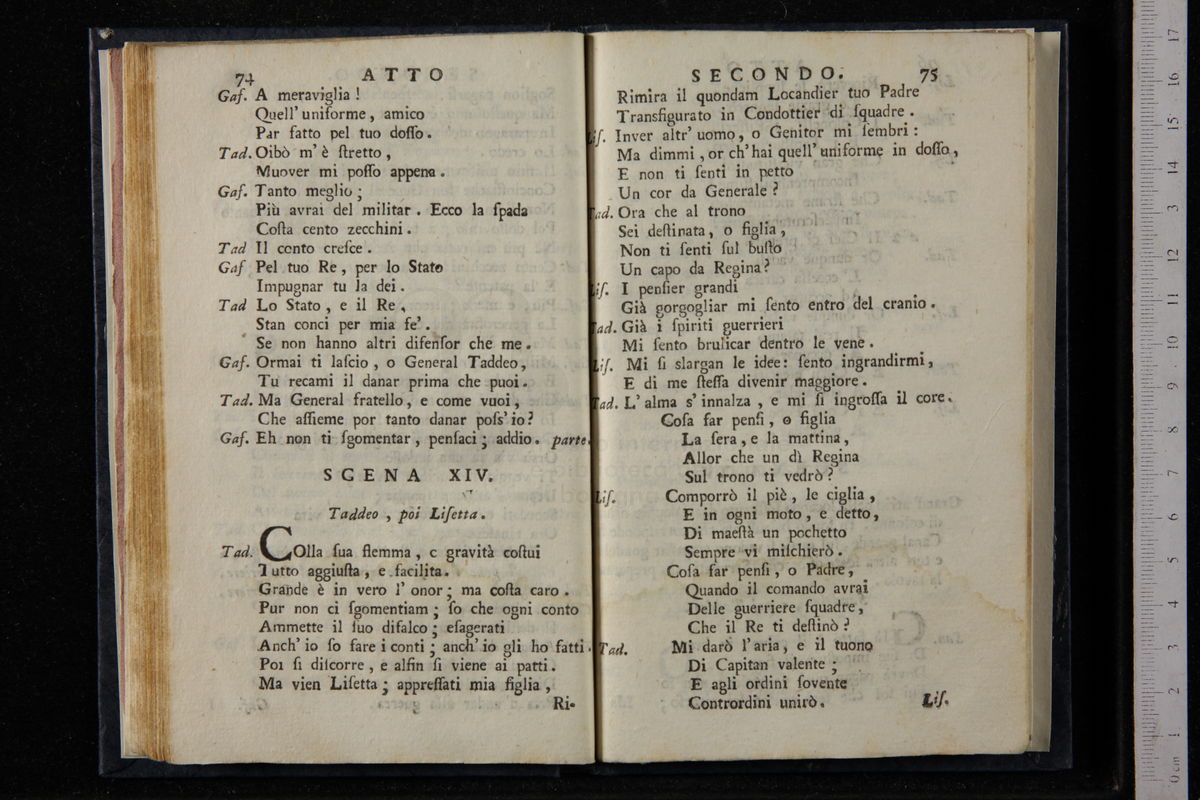 74 ATTO
Gaf. A meraviglia !
Quell' uniforme, amico
Par fatto pel tuo doſſo.
Tad. Oibò m' è ſtretto,
Muover mi poſſo appena.
Gaf. Tanto meglio;
Più avrai del militar. Ecco la ſpada
Coſta cento zecchini.
Tad Il conto creſce.
Gaf Pel tuo Re, per lo Stato
Impugnar tu la dei.
Tad Lo Stato, e il Re,
Stan conci per mia fe'.
Se non hanno altri difenſor che me.
Gaf. Ormai ti laſcio, o General Taddeo,
Tu recami il danar prima che puoi.
Tad. Ma General fratello, e come vuoi,
Che aſſieme por tanto danar poſs' io?
Gaf. Eh non ti ſgomentar, penſaci; addio. parte.
SCENA XIV.
Taddeo, poi Liſetta.
Tad. COlla ſua flemma, e gravità coſtui
Tutto aggiuſta, e facilita.
Grande è in vero l' onor; ma coſta caro.
Pur non ci ſgomentiam; ſo che ogni conto
Ammette il ſuo difalco; eſagerati
Anch' io ſo fare i conti; anch' io gli ho fatti.
Poi ſi diſcorre, e alfin ſi viene ai patti.
Ma vien Liſetta; appreſſati mia figlia,
Ri-
SECONDO. 75
Rimira il quondam Locandier tuo Padre
Transfigurato in Condottier di ſquadre.
Liſ. Inver altr' uomo, o Genitor mi ſembri:
Ma dimmi, or ch' hai quell' uniforme in doſſo,
E non ti ſenti in petto
Un cor da Generale?
Tad. Ora che al trono
Sei deſtinata, o figlia,
Non ti ſenti ſul buſto
Un capo da Regina?
Liſ. I penſier grandi
Già gorgogliar mi ſento entro del cranio.
Tad. Già i ſpiriti guerrieri
Mi ſento brulicar dentro le vene.
Liſ. Mi ſi slargan le idee: ſento ingrandirmi,
E di me ſteſſa divenir maggiore.
Tad. L' alma s' innalza, e mi ſi ingroſſa il core.
Coſa far penſi, o figlia
La ſera, e la mattina,
Allor che un dì Regina
Sul trono ti vedrò?
Liſ. Comporrò il piè, le ciglia,
E in ogni moto, e detto,
Di maeſtà un pochetto
Sempre vi miſchierò.
Coſa far penſi, o Padre,
Quando il comando avrai
Delle guerriere ſquadre,
Che il Re ti deſtinò?
Tad. Mi darò l' aria, e il tuono
Di Capitan valente;
E agli ordini ſovente
Contrordini unirò.
Liſ.